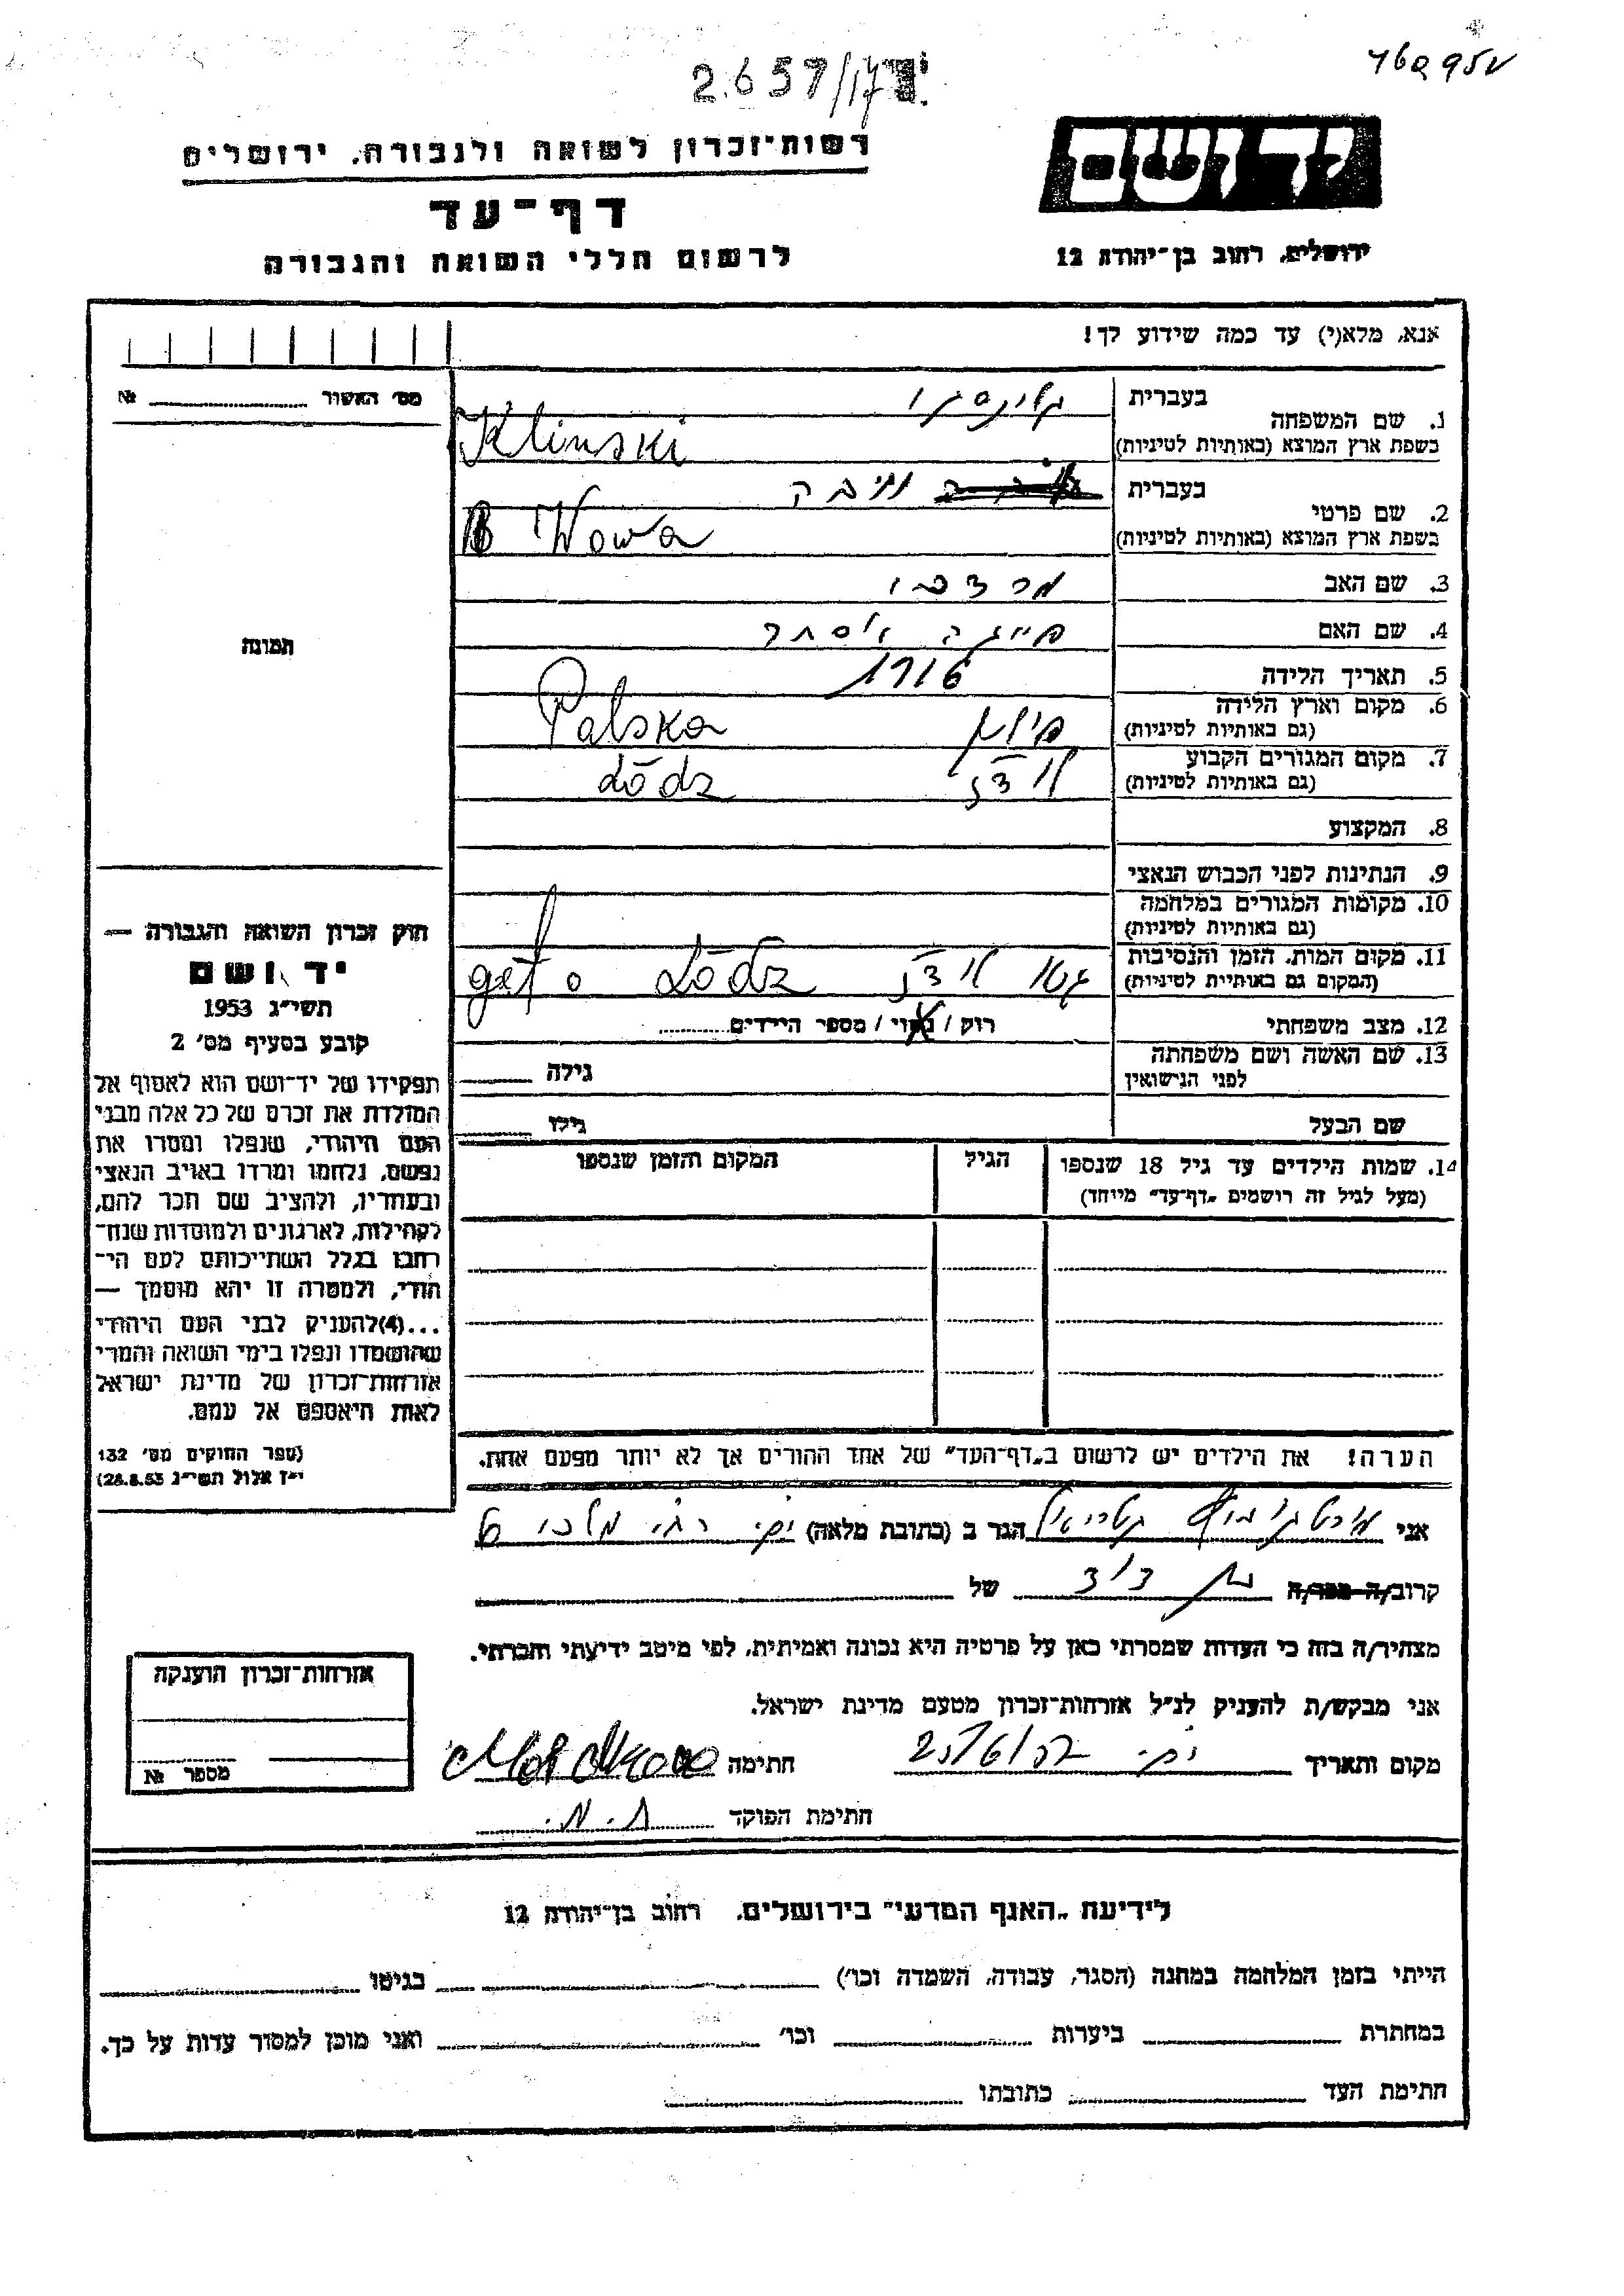 2657/17
רשות־זכרון לשואה ולגבורה, ירושלים
דף־עד
לרשום חללי השואה והגבורה
יד ושם
ירושלים, רחוב בן־יהודה 12
אנא, מלא(י) עד כמה שידוע לך!
מס׳ האשור № 
1. שם המשפחה בעברית קלינסקי
בשפת ארץ המוצא (באותיות לטיניות) Klinski
2. שם פרטי בעברית
בשפת ארץ המוצא (באותיות לטיניות) Nowa
3. שם האב מרדכי
4. שם האם פייגה אסתר
5. תאריך הלידה 1916
6. מקום וארץ הלידה פולין Polska
(גם באותיות לטיניות)
7. מקום המגורים הקבוע לודז Łódz
(גם באותיות לטיניות)
8. המקצוע
9. הנתינות לפני הכבוש הנאצי
10. מקומות המגורים במלחמה
(גם באותיות לטיניות)
11. מקום המות, הזמן והנסיבות גטו לודז geto Łódz
(המקום גם באותיית לטיניות)
12. מצב משפחתי רוק / נשוי / מספר הילדים
13. שם האשה ושם משפחתה
לפני הנישואין גילה
שם הבעל גילו
14. שמות הילדים עד גיל 18 שנספו הגיל המקום והזמן שנספו
(מעל לגיל זה רושמים „דף־עד" מייוחד)
תמונה
חוק זכרון השואה והגבורה —
יד ושם
תשי״ג 1953
קובע בסעיף מס׳ 2
תפקידו של יד־ושם הוא לאסוף אל
המולדת את זכרם של כל אלה מבני
העם היהודי, שנפלו ומסרו את
נפשם, נלחמו ומרדו באויב הנאצי
ובעוזריו, ולהציב שם וזכר להם,
לקהילות, לארגונים ולמוסדות שנח־
רבו בגלל השתייכותם לעם הי־
הודי, ולמטרה זו יהא מוסמך —
...(4)להעניק לבני העם היהודי
שהושמדו ונפלו בימי השואה והמרי
אזרחות־זכרון של מדינת ישראל
לאות היאספם אל עמם.
(ספר החוקים מס׳ 132
י״ז אלול תשי״ג 28.8.53)
הערה! את הילדים יש לרשום ב„דף־העד" של אחד ההורים אך לא יותר מפעם אחת.
אני הגר ב (כתובת מלאה)
קרוב/ה מכר/ה בן דוד של
מצהיר/ה בזה כי העדות שמסרתי כאן על פרטיה היא נכונה ואמיתית, לפי מיטב ידיעתי והכרתי.
אני מבקש/ת להעניק לנ״ל אזרחות־זכרון מטעם מדינת ישראל.
מקום ותאריך חתימה
חתימת הפוקד
אזרחות־זכרון הוענקה
מספר №
לידיעת „האגף המדעי" בירושלים, רחוב בן־יהודה 12
הייתי בזמן המלחמה במחנה (הסגר, עבודה, השמדה וכו׳) בגיטו
במחתרת ביערות וכו׳ ואני מוכן למסור עדות על כך.
חתימת העד כתובתו